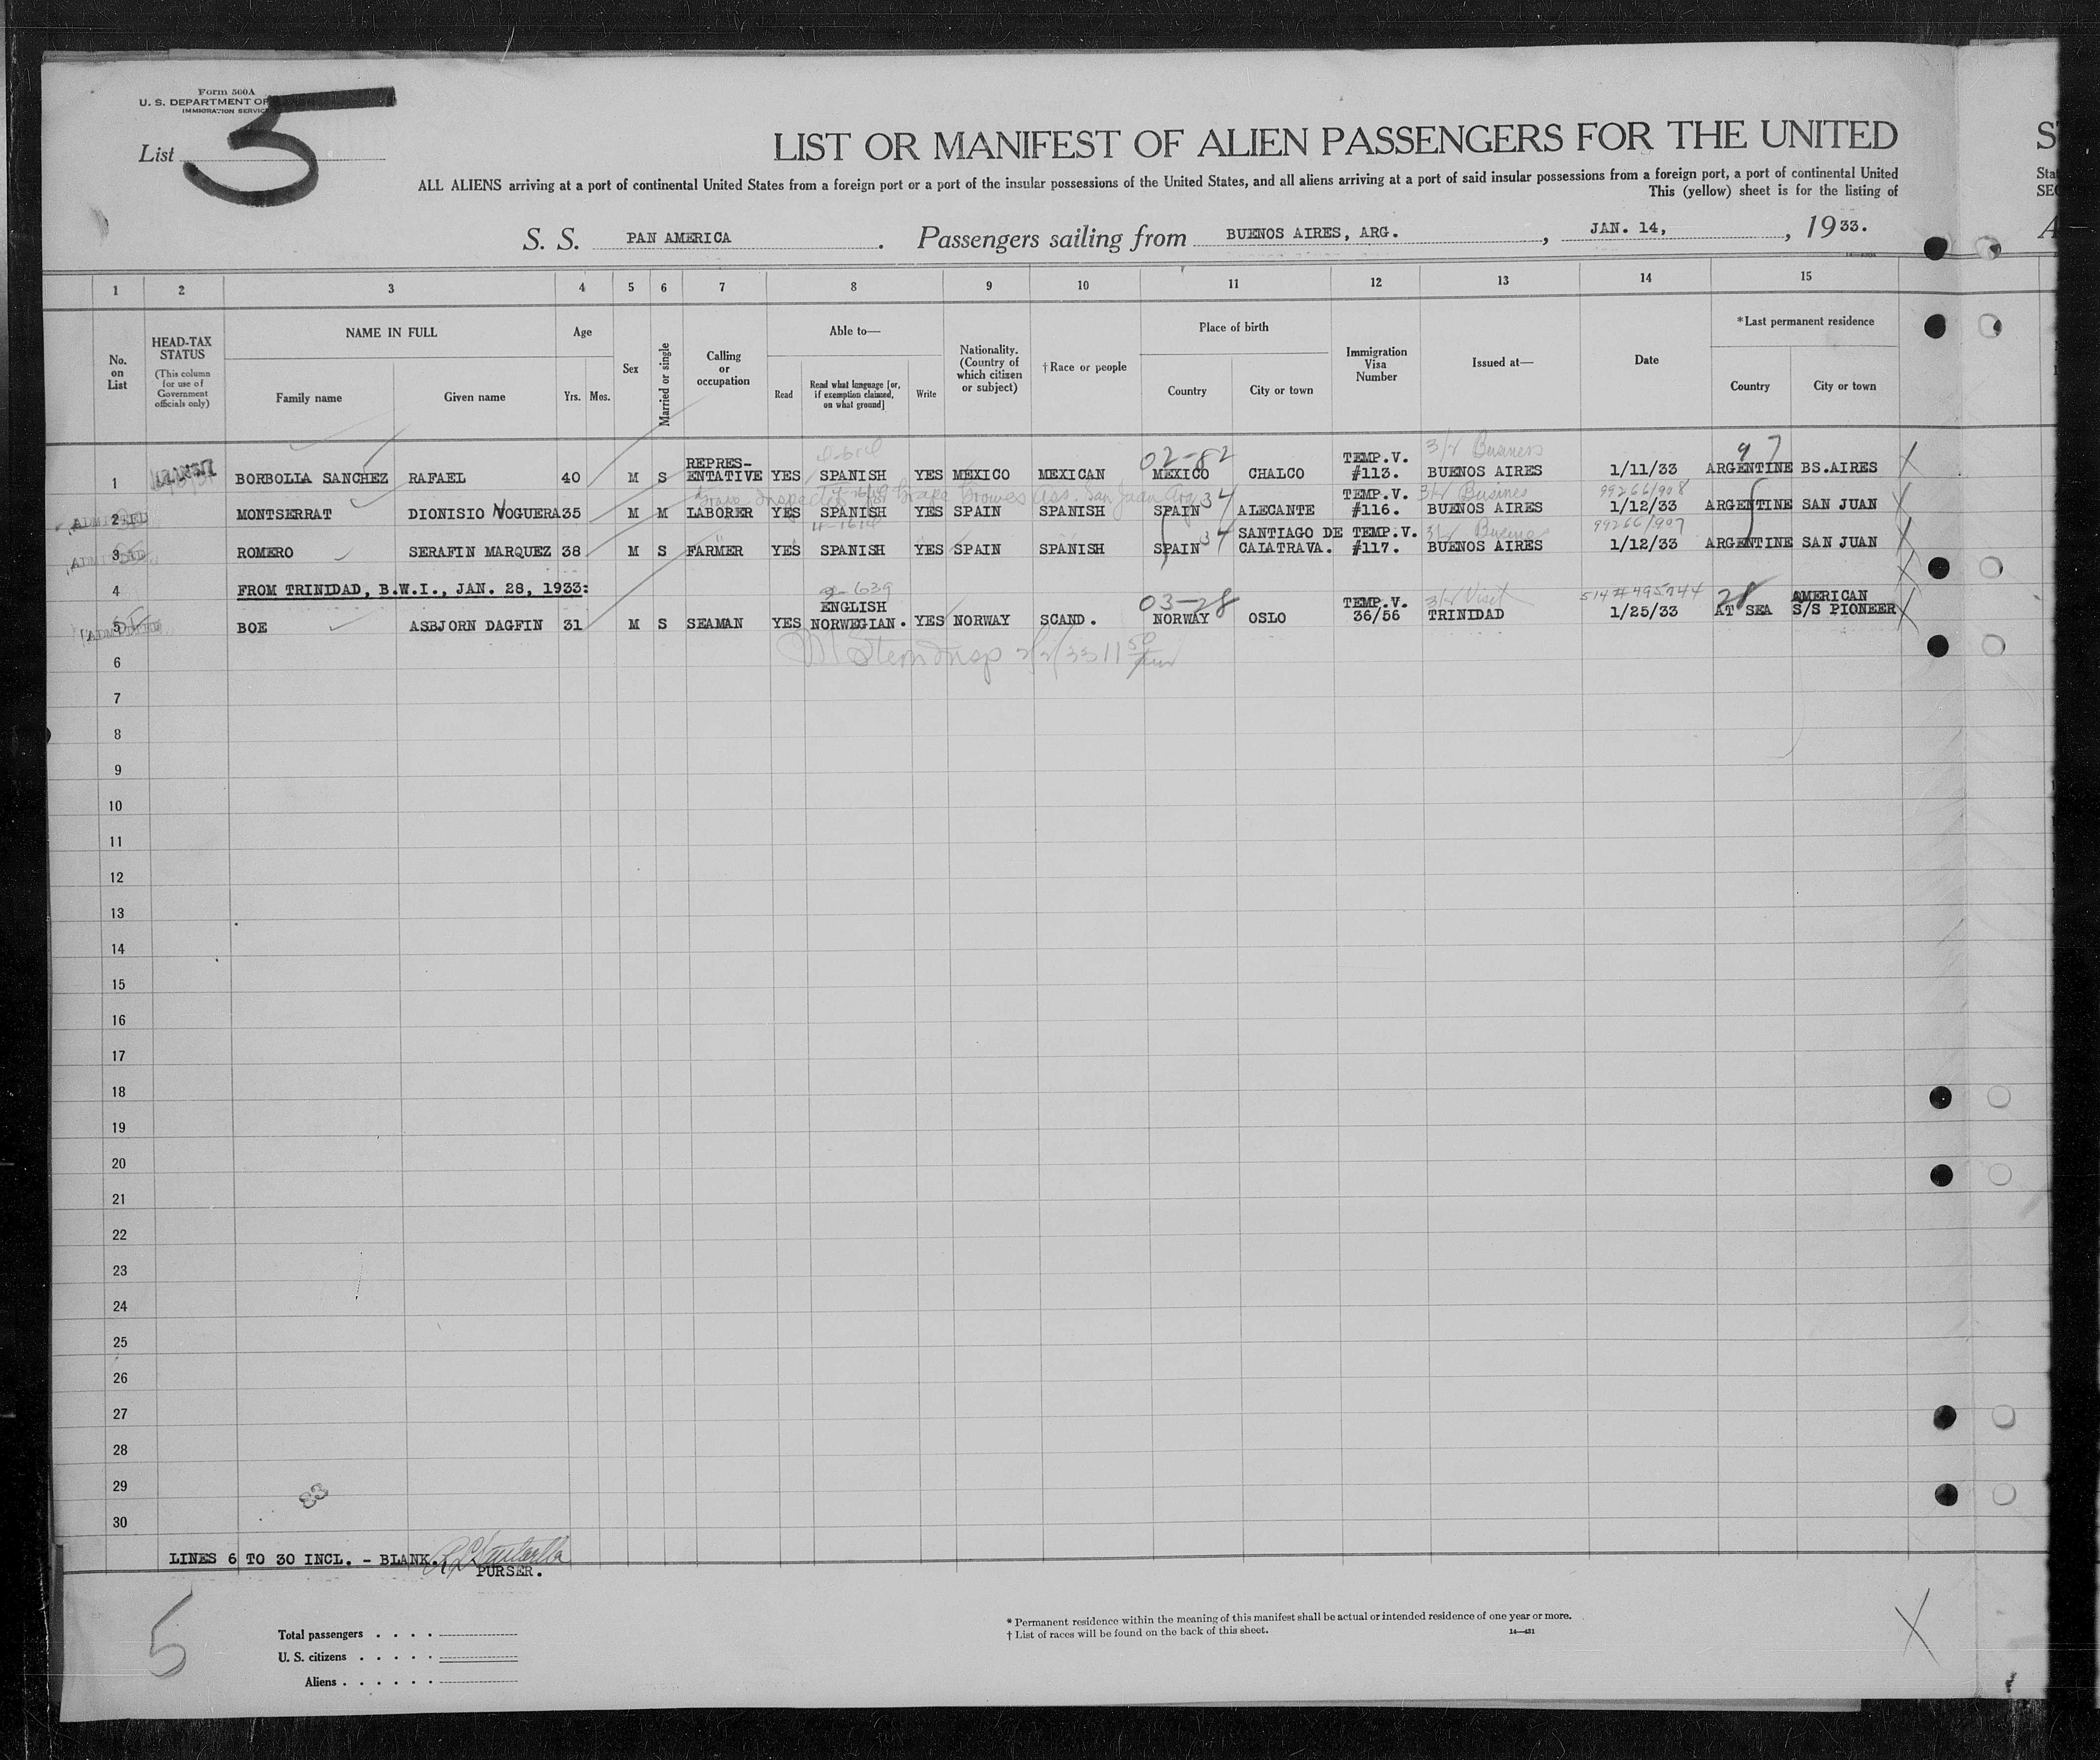 Form 500A
U. S. DEPARTMENT OF
IMMIGRATION SERVICE
List 5
LIST OR MANIFEST OF ALIEN PASSENGERS FOR THE UNITED
ALL ALIENS arriving at a port of continental United States from a foreign port or a port of the insular possessions of the United States, and all aliens arriving at a port of said insular possessions from a foreign port, a port of continental United
This (yellow) sheet is for the listing of
S. S. PAN AMERICA. Passengers sailing from BUENOS AIRES, ARG., JAN. 14, , 1933.
1 2 3 4 5 6 7 8 9 10 11 12 13 14 15
No. on List
HEAD-TAX STATUS
(This column for use of Government officials only)
NAME IN FULL
Family name Given name
Age
Yrs. Mos.
Sex
Married or single
Calling or occupation
Able to—
Read
Read what language [or, if exemption claimed, on what ground]
Write
Nationality. (Country of which citizen or subject)
†Race or people
Place of birth
Country City or town
Immigration Visa Number
Issued at—
Date
*Last permanent residence
Country City or town
02-82 3/4 Business 97
1 TRANSIT BORBOLLA SANCHEZ RAFAEL 40 M S REPRES-ENTATIVE YES SPANISH YES MEXICO MEXICAN MEXICO CHALCO TEMP.V. #113. BUENOS AIRES 1/11/33 ARGENTINE BS.AIRES
Grape Inspector Grape Growers Ass. San Juan Arg 34 3/4 Busines 99266/908
2 ADMITTED MONTSERRAT DIONISIO NOGUERA 35 M M LABORER YES SPANISH YES SPAIN SPANISH SPAIN ALECANTE TEMP.V. #116. BUENOS AIRES 1/12/33 ARGENTINE SAN JUAN
34 99266/907
3 ADMITTED ROMERO SERAFIN MARQUEZ 38 M S FARMER YES SPANISH YES SPAIN SPANISH SPAIN SANTIAGO DE CALATRAVA. TEMP.V. #117. BUENOS AIRES 1/12/33 ARGENTINE SAN JUAN
4 FROM TRINIDAD, B.W.I., JAN. 28, 1933:
03-28 3/4 Visit 28
5 ADMITTED BOE ASBJORN DAGFIN 31 M S SEAMAN YES ENGLISH NORWEGIAN. YES NORWAY SCAND. NORWAY OSLO TEMP.V. 36/56 TRINIDAD 1/25/33 AT SEA AMERICAN S/S PIONEER
6
7
8
9
10
11
12
13
14
15
16
17
18
19
20
21
22
23
24
25
26
27
28
29
30
83
LINES 6 TO 30 INCL. - BLANK.
PURSER.
5
Total passengers
U. S. citizens
Aliens
* Permanent residence within the meaning of this manifest shall be actual or intended residence of one year or more.
† List of races will be found on the back of this sheet.
14—431
X